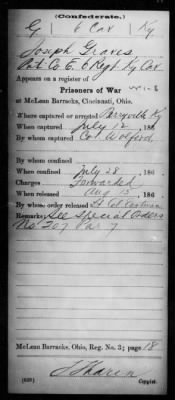 (Confederate.)
G 6 Cav Ky
Joseph Graves
Pvt Co E, 6 Regt Ky Cav
Appears on a register of
Prisoners of War
at McLean Barracks, Cincinnati, Ohio.
Where captured or arrested Perryville Ky
When captured July 12, 186
By whom captured Col Wolford
By whom confined
When confined July 28, 186
Charges Forwarded
When released Aug 15, 186
By whose order released Lt Col Eastman
Remarks: See Special Orders
No. 207 Par 7
McLean Barracks, Ohio, Reg. No. 3; page 18
(639) Copyist.